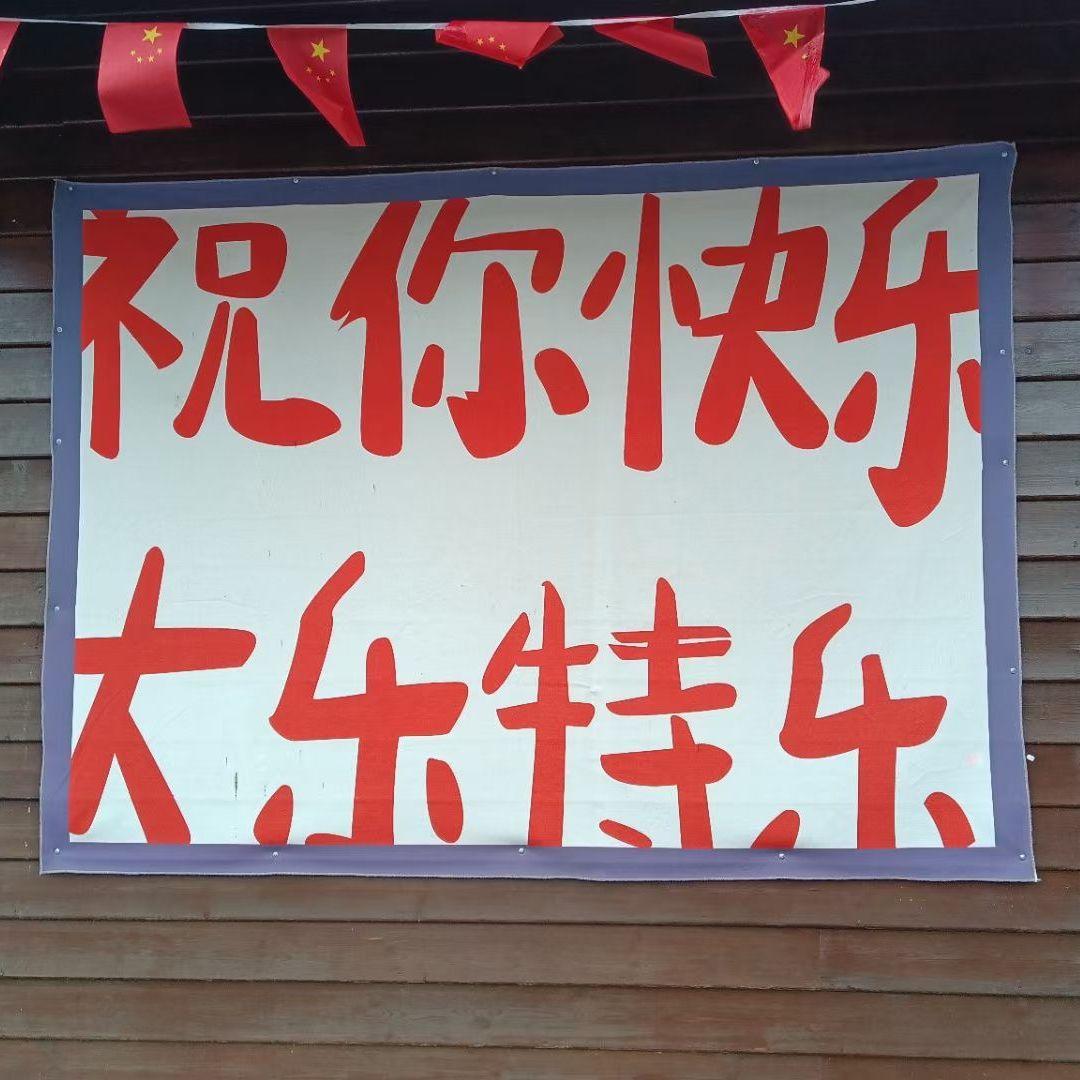 祝你快乐
大乐特乐